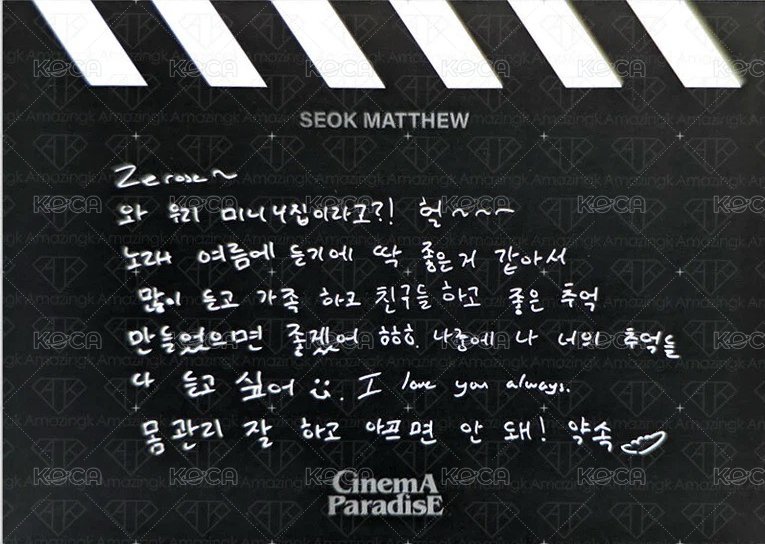 SEOK MATTHEW
Zerose~
와 우리 미니 4집이라고?! 헐~~~
노래 여름에 듣기에 딱 좋은거 같아서
많이 듣고 가족 하고 친구들 하고 좋은 추억
만들었으면 좋겠어 하하하. 나중에 나 너의 추억들
다 듣고 싶어 :). I love you always.
몸관리 잘 하고 아프면 안 돼! 약속
CinemA
ParadisE